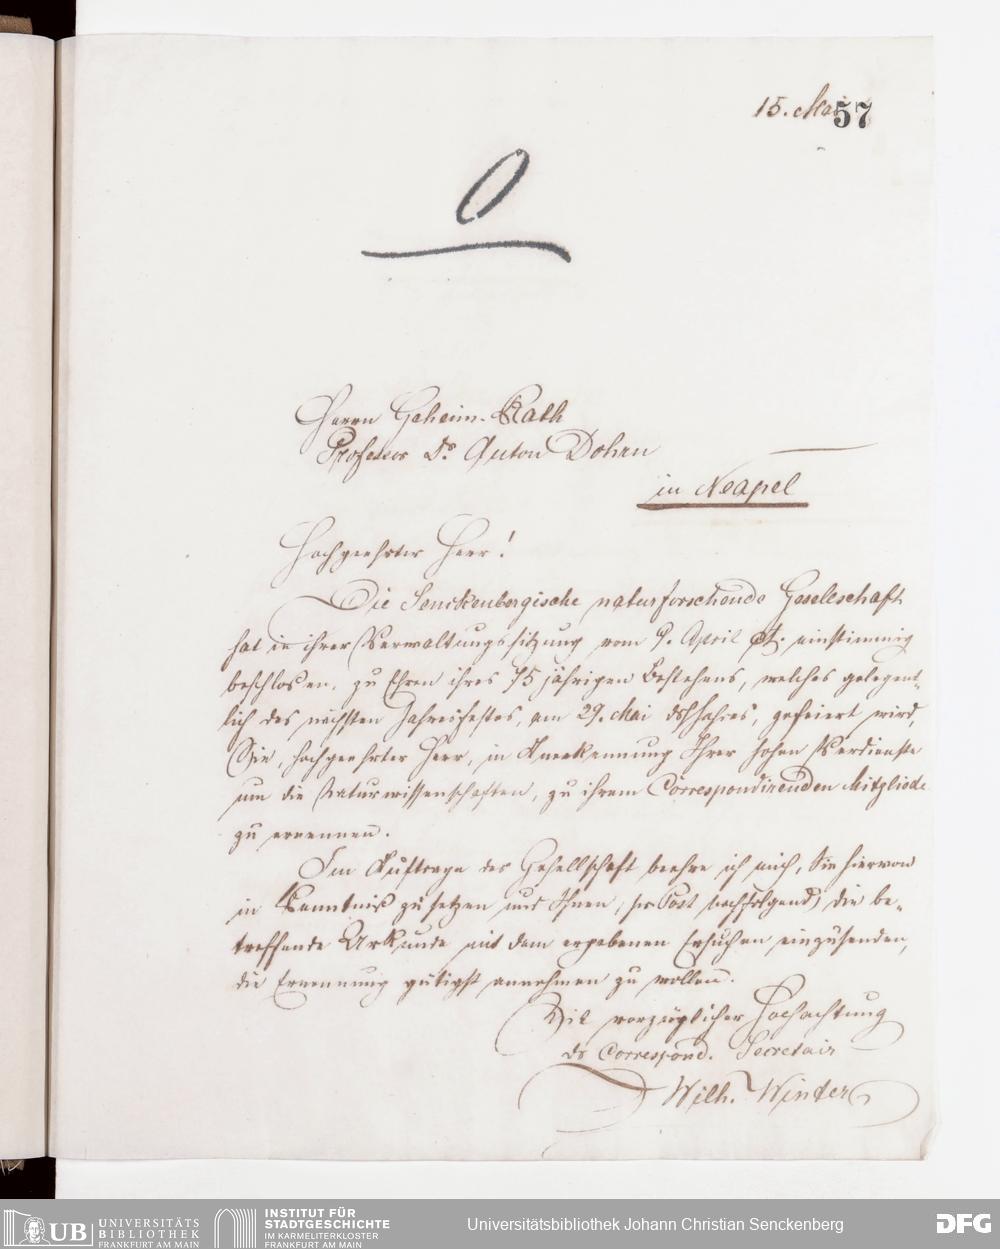 15. Mai
57
0
Herrn Geheim-Rath
Professor Dr. Anton Dohrn
in Neapel
Hochgeehrter Herr!
Die Senckenbergische naturforschende Gesellschaft
hat in ihrer Verwaltungssitzung vom 9. April ct. einstimmig
beschlossen, zu Ehren ihres 75 jährigen Bestehens, welches gelegent-
lich des nächsten Jahresfestes, am 29. Mai ds Jahres, gefeiert wird,
Sie, hochgeehrter Herr, in Anerkennung Ihrer hohen Verdienste
um die Naturwissenschaften, zu ihrem Correspondirenden Mitgliede
zu ernennen.
Im Auftrage der Gesellschaft beehre ich mich, Sie hiervon
in Kenntniß zu setzen und Ihnen, per Post nachfolgend, die be-
treffende Urkunde mit dem ergebenen Ersuchen einzusenden,
die Ernennung gütigst annehmen zu wollen.
Mit vorzüglicher Hochachtung
der Correspond. Secretair
Wilh. Winter
UB UNIVERSITÄTS
BIBLIOTHEK
FRANKFURT AM MAIN
INSTITUT FÜR
STADTGESCHICHTE
IM KARMELITERKLOSTER
FRANKFURT AM MAIN
Universitätsbibliothek Johann Christian Senckenberg
DFG